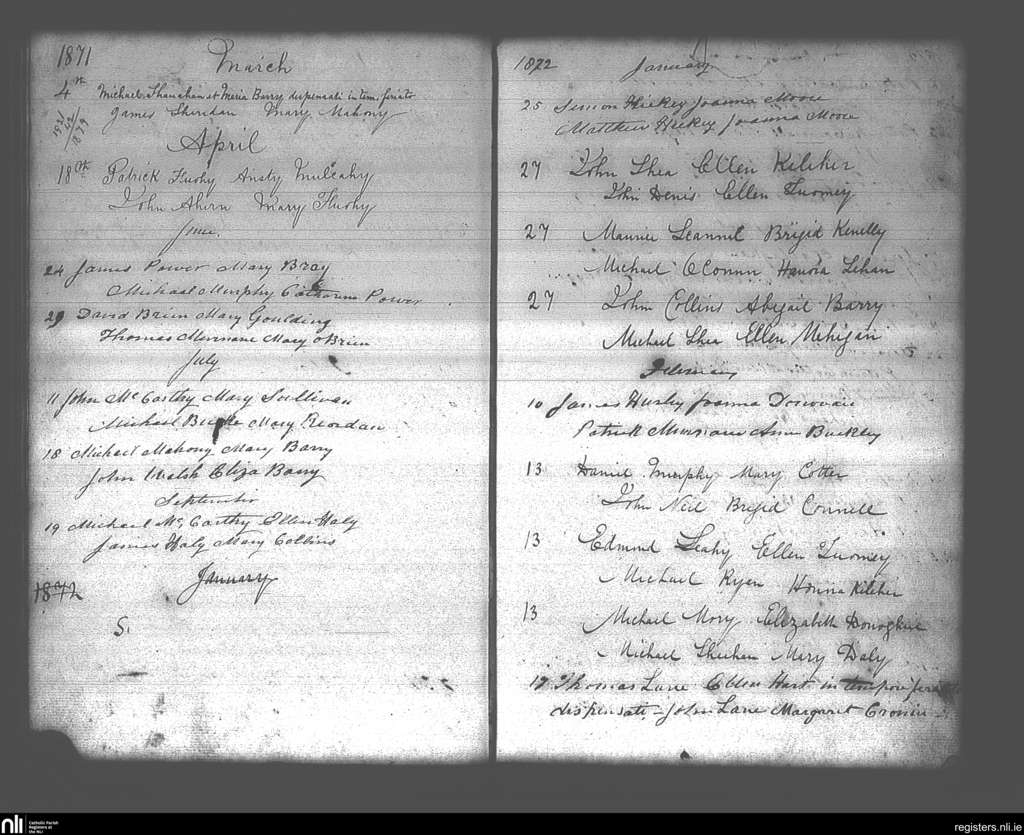 1871 March
4th Michael Shanahan et Maria Barry dispensati in tem: feriato
James Sheridan Mary Mahony
April
18th Patrick Fluohy Ansty Mulcahy
John Ahern Mary Fluohy
June.
24 James Power Mary Bray
Michael Murphy Catherine Power
29 David Brien Mary Goulding
Thomas Murnane Mary O Brien
July
11 John McCarthy Mary Soullivan
Michael Burke Mary Reordan
18 Michael Mahony Mary Barry
John Walsh Eliza Barry
September
19 Michael Mc Carthy Ellen Haly
James Haly Mary Collins
January
1872
S.
1872 January
25 Simon Hickey Joanna Moore
Matthew Hickey Joanna Moore
27 John Shea Ellen Keleher
John Denis Ellen Twomey
27 Maurice Brigid Kenelly
Michael OConnor Hanora Lehan
27 John Collins Abigail Barry
Michael Shea Ellen Mehigan
February
10 James Hurly Joanna Donovan
Patrick Murnane Ann Buckley
13 Daniel Murphy Mary Cotter
John Neil Brigid Connell
13 Edmond Leahy Ellen Twomey
Michael Ryan Honora Keleher
13 Michael Mory Elizabeth Donoghue
Michael Sheehan Mary Daly
17 Thomas Lane Ellen Hart in tempore
dispensati John Lane Margaret Cronin
nli
Catholic Parish
Registers at
the NLI
registers.nli.ie